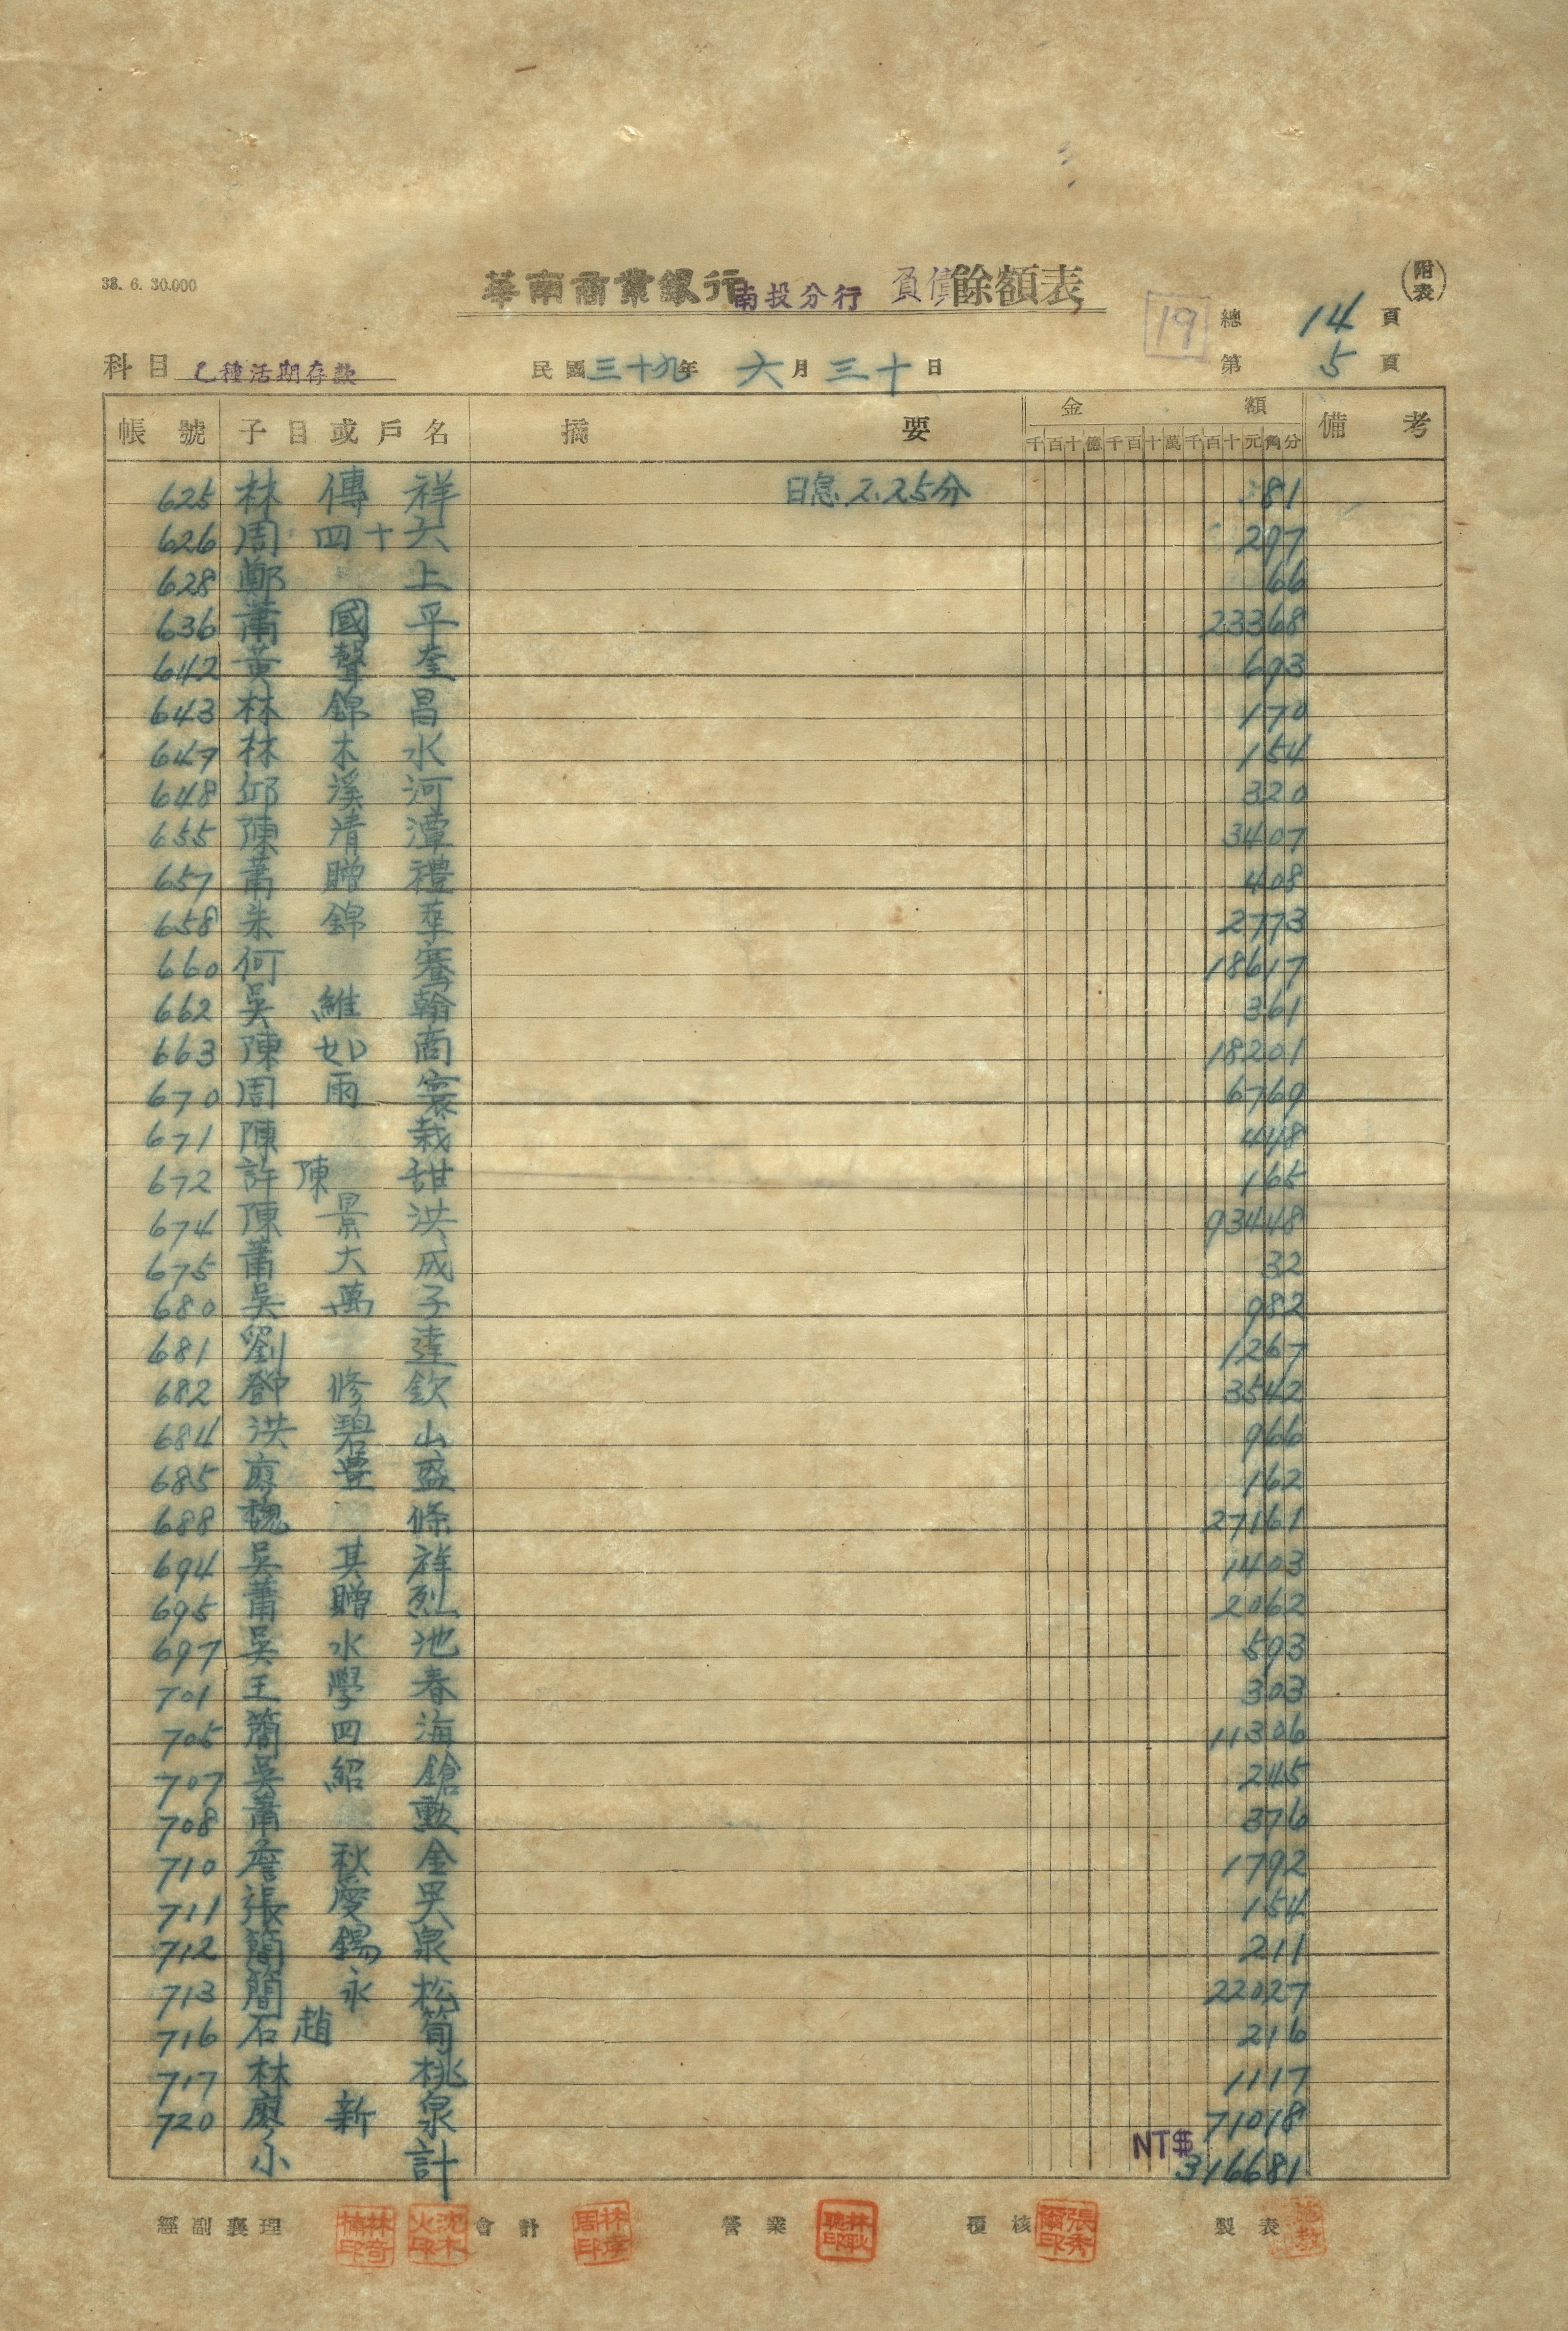 38. 6. 30.000
華南商業銀行南投分行 負債餘額表
附表
19 總 14 頁
科目 乙種活期存款 民國三十九年 六月三十日 第 5 頁
帳號 子目或戶名 摘要 金額 備考
千百十億千百十萬千百十元角分
625 林傳祥 日息 2.25分 81
626 周四十六 297
628 鄭上 66
636 蕭國平 23368
642 黃聲奎 693
643 林錦昌 170
647 林木水 154
648 邱溪河 320
655 陳清潭 3407
657 蕭贈禮 408
658 朱錦 2773
660 何騫 18617
662 吳維翰 361
663 陳如商 18201
670 周雨寰 6769
671 陳栽 448
672 許陳甜 165
674 陳景洪 93448
675 蕭大成 32
680 吳萬子 982
681 劉達 1267
682 鄧修欽 3542
684 洪碧山 966
685 廖豊盛 162
688 魏條 27161
694 吳其祥 1403
695 蕭贈烈 2062
697 吳水池 593
701 王學春 303
705 簡四海 11306
707 吳紹鎗 245
708 蕭勲 376
710 詹秋金 1792
711 張慶 154
712 簡錫泉 211
713 簡永松 22027
716 石趙筍 216
717 林桃 1117
720 廖新泉 71018
小計 NT$ 316681
經副襄理 會計 營業 覆核 製表